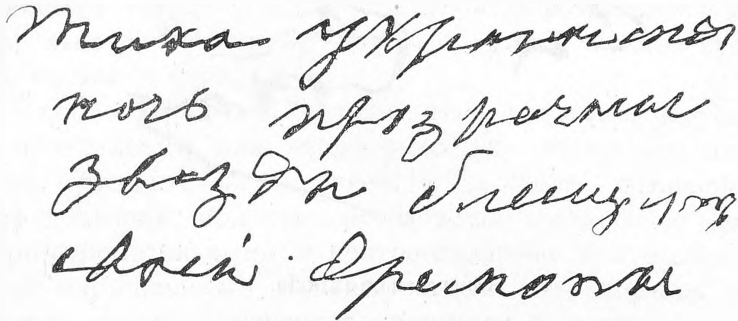 тиха украинскы
ночь прозрачны
звезды блещут
своей дремоты